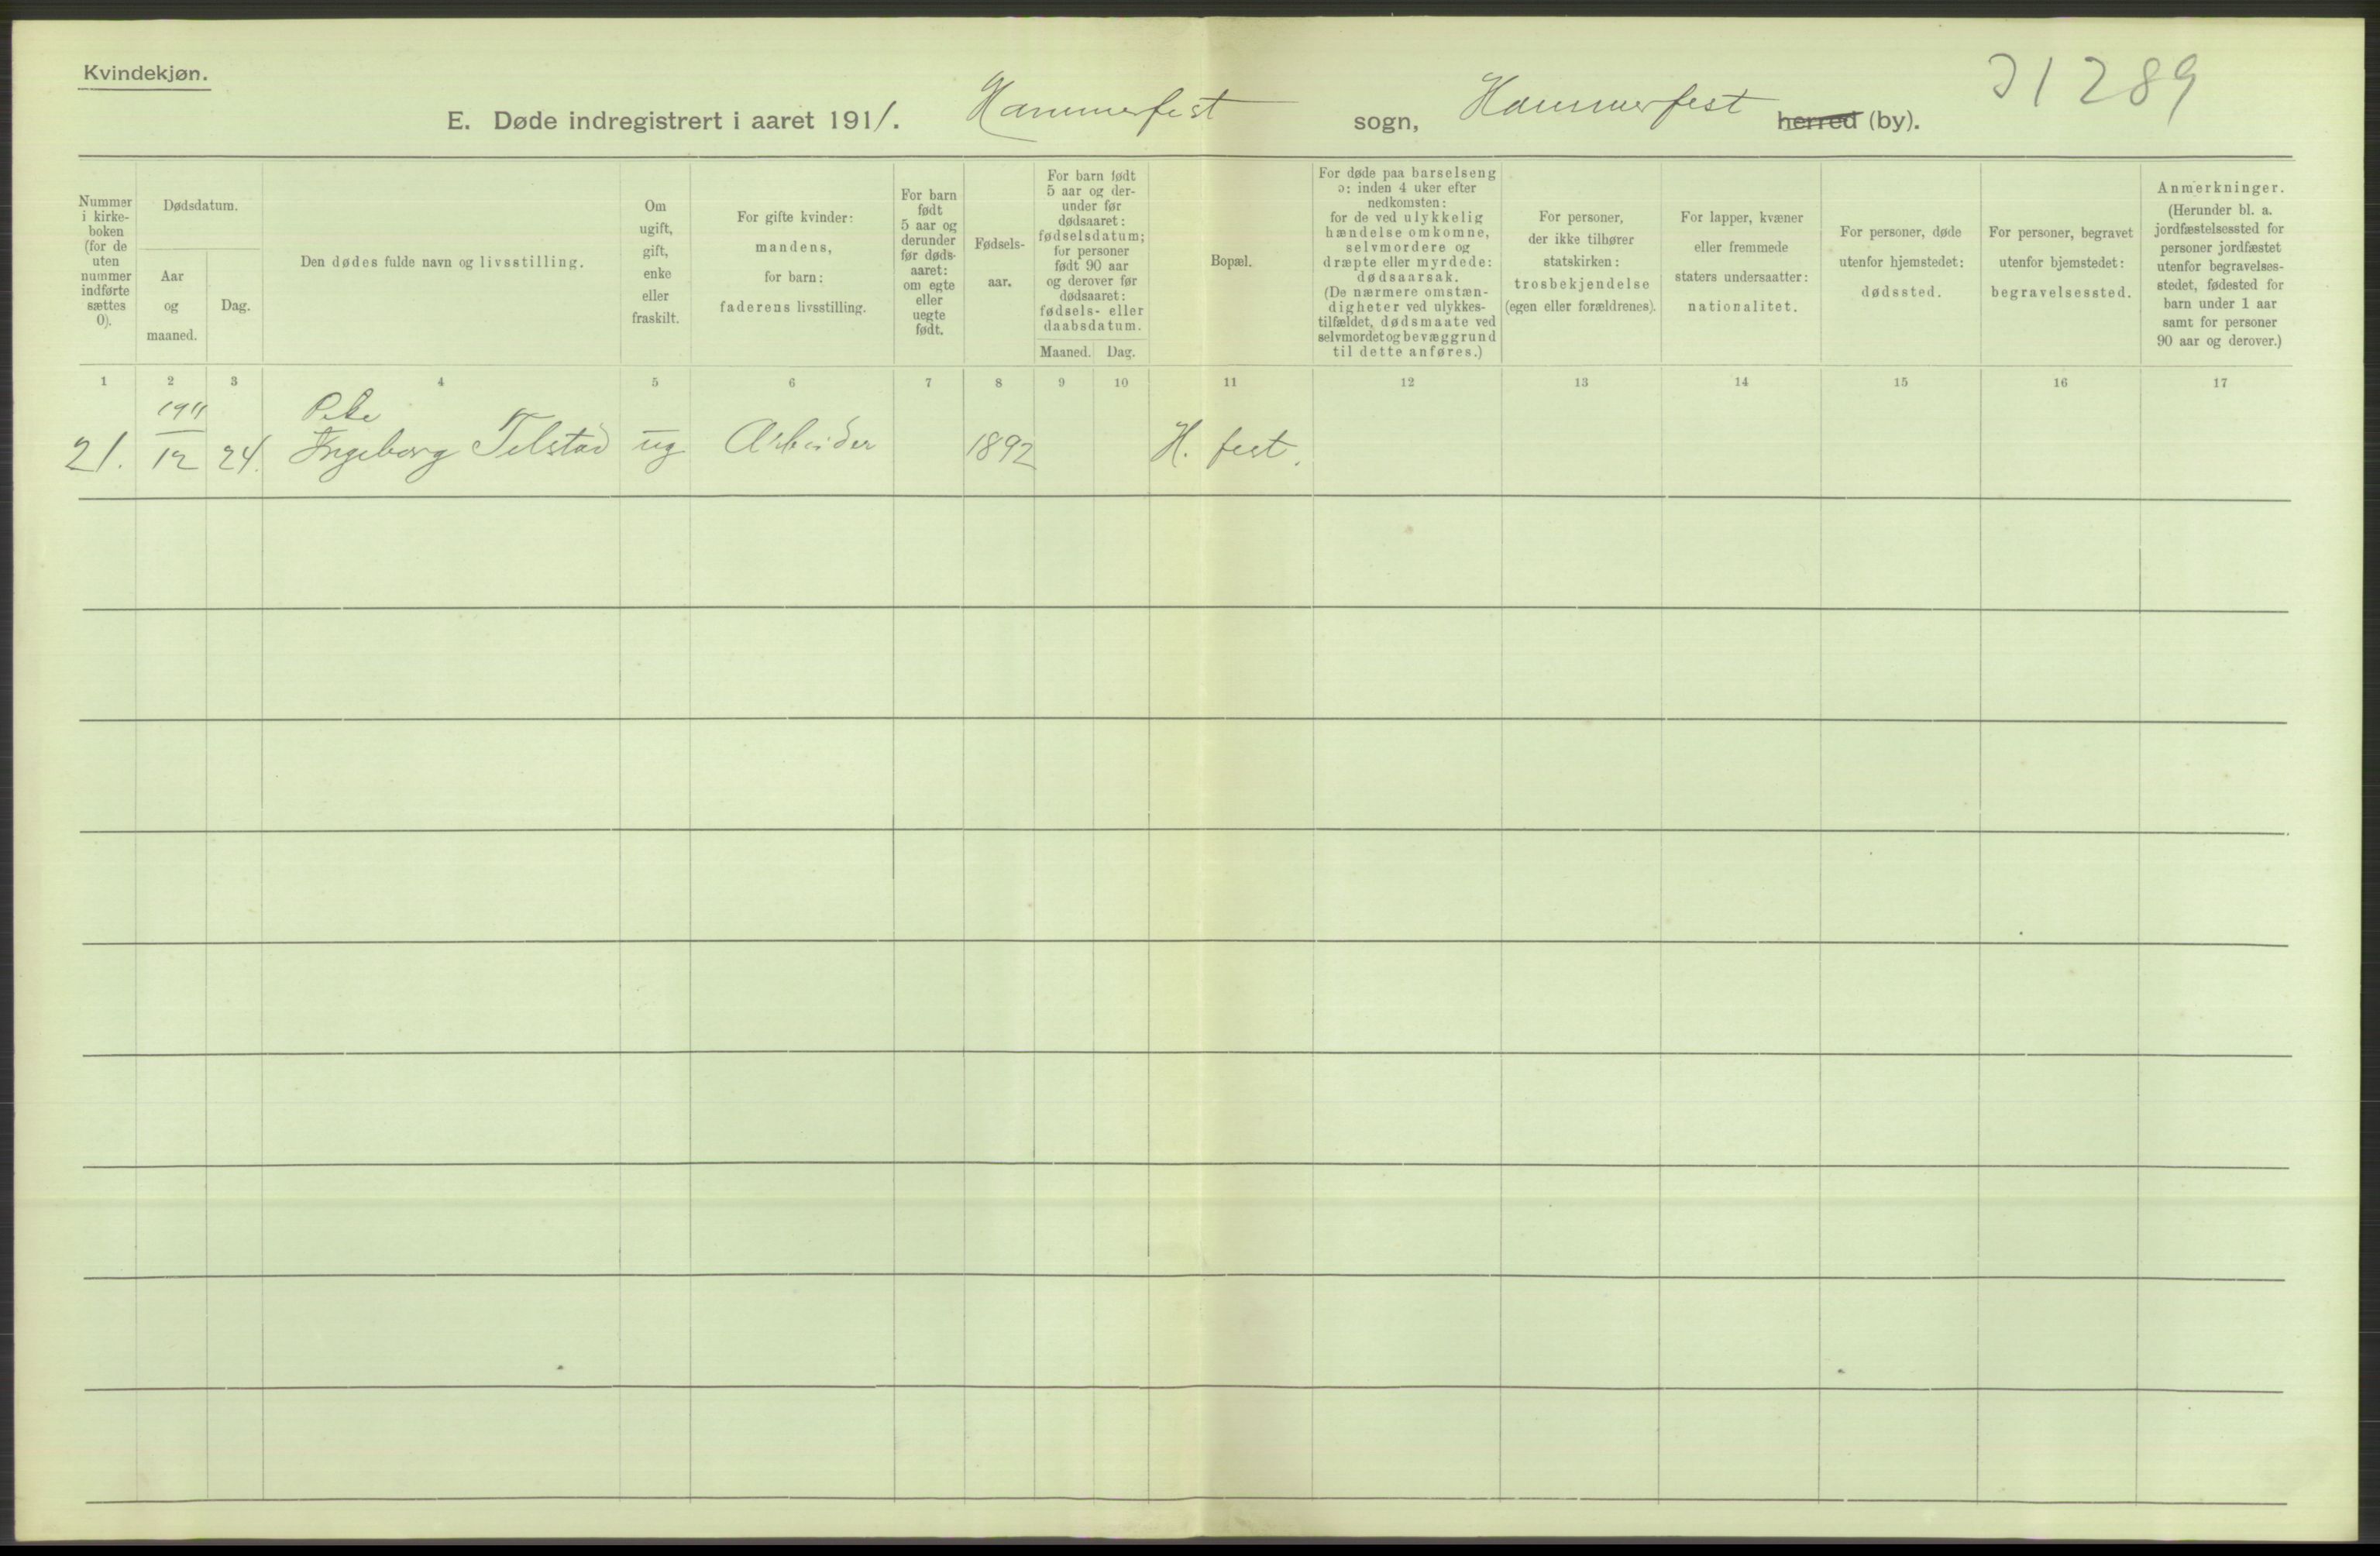 Kvindekjøn.
31289
E. Døde indregistrert i aaret 1911. Hammerfest sogn, Hammerfest herred (by).
Nummer
i kirke-
boken
(for de
uten
nummer
indførte
sættes
0).
Dødsdatum.
Aar
og
maaned.
Dag.
Den dødes fulde navn og livsstilling.
Om
ugift,
gift,
enke
eller
fraskilt.
For gifte kvinder:
mandens,
for barn:
faderens livsstilling.
For barn
født
5 aar og
derunder
før døds-
aaret:
om egte
eller
uegte
født.
Fødsels-
aar.
For barn født
5 aar og der-
under før
dødsaaret:
fødselsdatum;
for personer
født 90 aar
og derover før
dødsaaret:
fødsels- eller
daabsdatum.
Maaned. Dag.
Bopæl.
For døde paa barselseng
ɔ: inden 4 uker efter
nedkomsten:
for de ved ulykkelig
hændelse omkomne,
selvmordere og
dræpte eller myrdede:
dødsaarsak.
(De nærmere omstæn-
digheter ved ulykkes-
tilfældet, dødsmaate ved
selvmordet og bevæggrund
til dette anføres.)
For personer,
der ikke tilhører
statskirken:
trosbekjendelse
(egen eller forældrenes).
For lapper, kvæner
eller fremmede
staters undersaatter:
nationalitet.
For personer, døde
utenfor hjemstedet:
dødssted.
For personer, begravet
utenfor hjemstedet:
begravelsessted.
Anmerkninger.
(Herunder bl. a.
jordfæstelsessted for
personer jordfæstet
utenfor begravelses-
stedet, fødested for
barn under 1 aar
samt for personer
90 aar og derover.)
1 2 3 4 5 6 7 8 9 10 11 12 13 14 15 16 17
1911
21. 12 24. Ingeborg Telstad ug Arbeider 1892 H. fest.